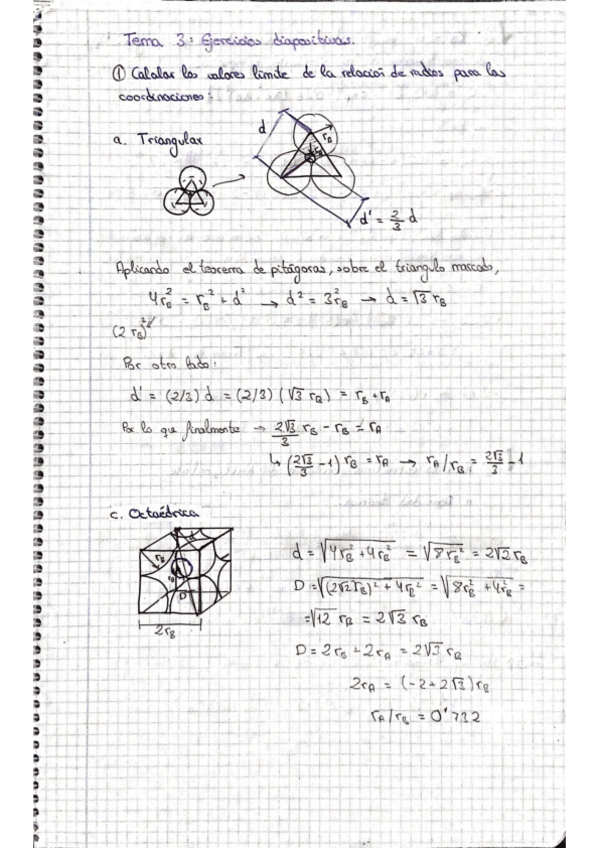 Tema 3: Ejercicios diapositivas.
① Calcular los valores límite de la relación de radios para las
coordinaciones:
a. Triangular
d
r_B
d' = 2/3 d
Aplicando el teorema de pitágoras, sobre el triangulo marcado,
4r_B² = r_B² + d² → d² = 3r_B² → d = √3 r_B
(2 r_B)²
Por otro lado:
d' = (2/3) d = (2/3) (√3 r_B) = r_B + r_A
Por lo que finalmente → 2√3/3 r_B - r_B = r_A
↳ (2√3/3 - 1) r_B = r_A → r_A/r_B = 2√3/3 - 1
c. Octaédrica
d
r_B
D
2r_B
d = √(4r_B² + 4r_B²) = √(8r_B²) = 2√2 r_B
D = √((2√2 r_B)² + 4r_B²) = √(8r_B² + 4r_B²) =
= √12 r_B = 2√3 r_B
D = 2r_B + 2r_A = 2√3 r_B
2r_A = (-2 + 2√3) r_B
r_A/r_B = 0'732